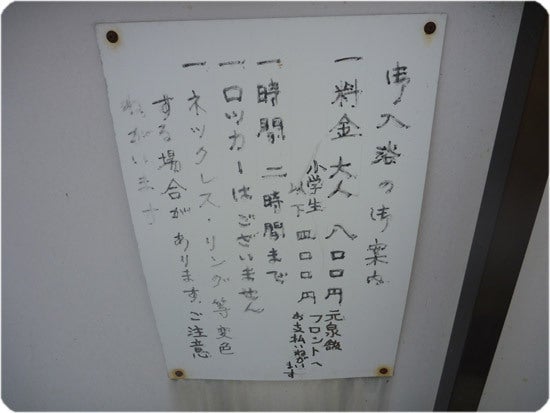 御入浴の御案内
一料金 大人 八〇〇円
小学生以下 四〇〇円
元泉館フロントへお支払いねがいます
一時間 二時間まで
一ロッカーはございません
一ネックレス・リング等変色
する場合があります、ご注意
ねがいます